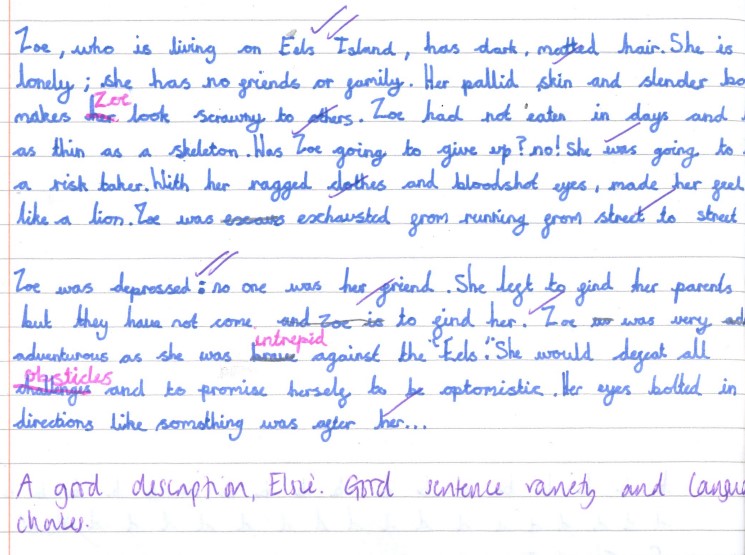 Zoe, who is living on Eels Island, has dark, matted hair. She is
lonely; she has no friends or family. Her pallid skin and slender bo
Zoe
makes her look scrawny to others. Zoe had not eaten in days and
as thin as a skeleton. Was Zoe going to give up? no! She was going to
a risk baker. With her ragged clothes and bloodshot eyes, made her feel
like a lion. Zoe was exchausted from running from street to street
Zoe was depressed: no one was her friend. She left to find her parents
but they have not come and Zoe is to find her. Zoe was very ad
intrepid
adventurous as she was brave against the "Eels." She would defeat all
obsticles
challenges and to promise herself to be optomistic. Her eyes bolted in
directions like something was after her...
A good description, Elsie. Good sentence variety and langu
choices.